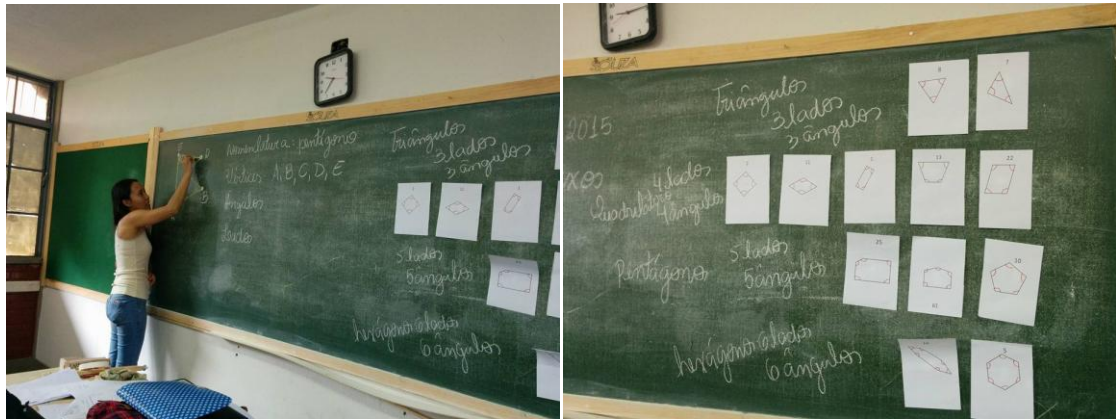 Nomenclatura: pentágono
Vértices A, B, C, D, E
Ângulos
Lados
B
Triângulos
3 lados
3 ângulos
5 lados
5 ângulos
hexágonos 6 lados
6 ângulos
2015
Triângulos
3 lados
3 ângulos
8
7
xos
4 lados
Quadrilátero
4 ângulos
13
22
Pentágono
5 lados
5 ângulos
25
10
hexágonos 6 lados
6 ângulos